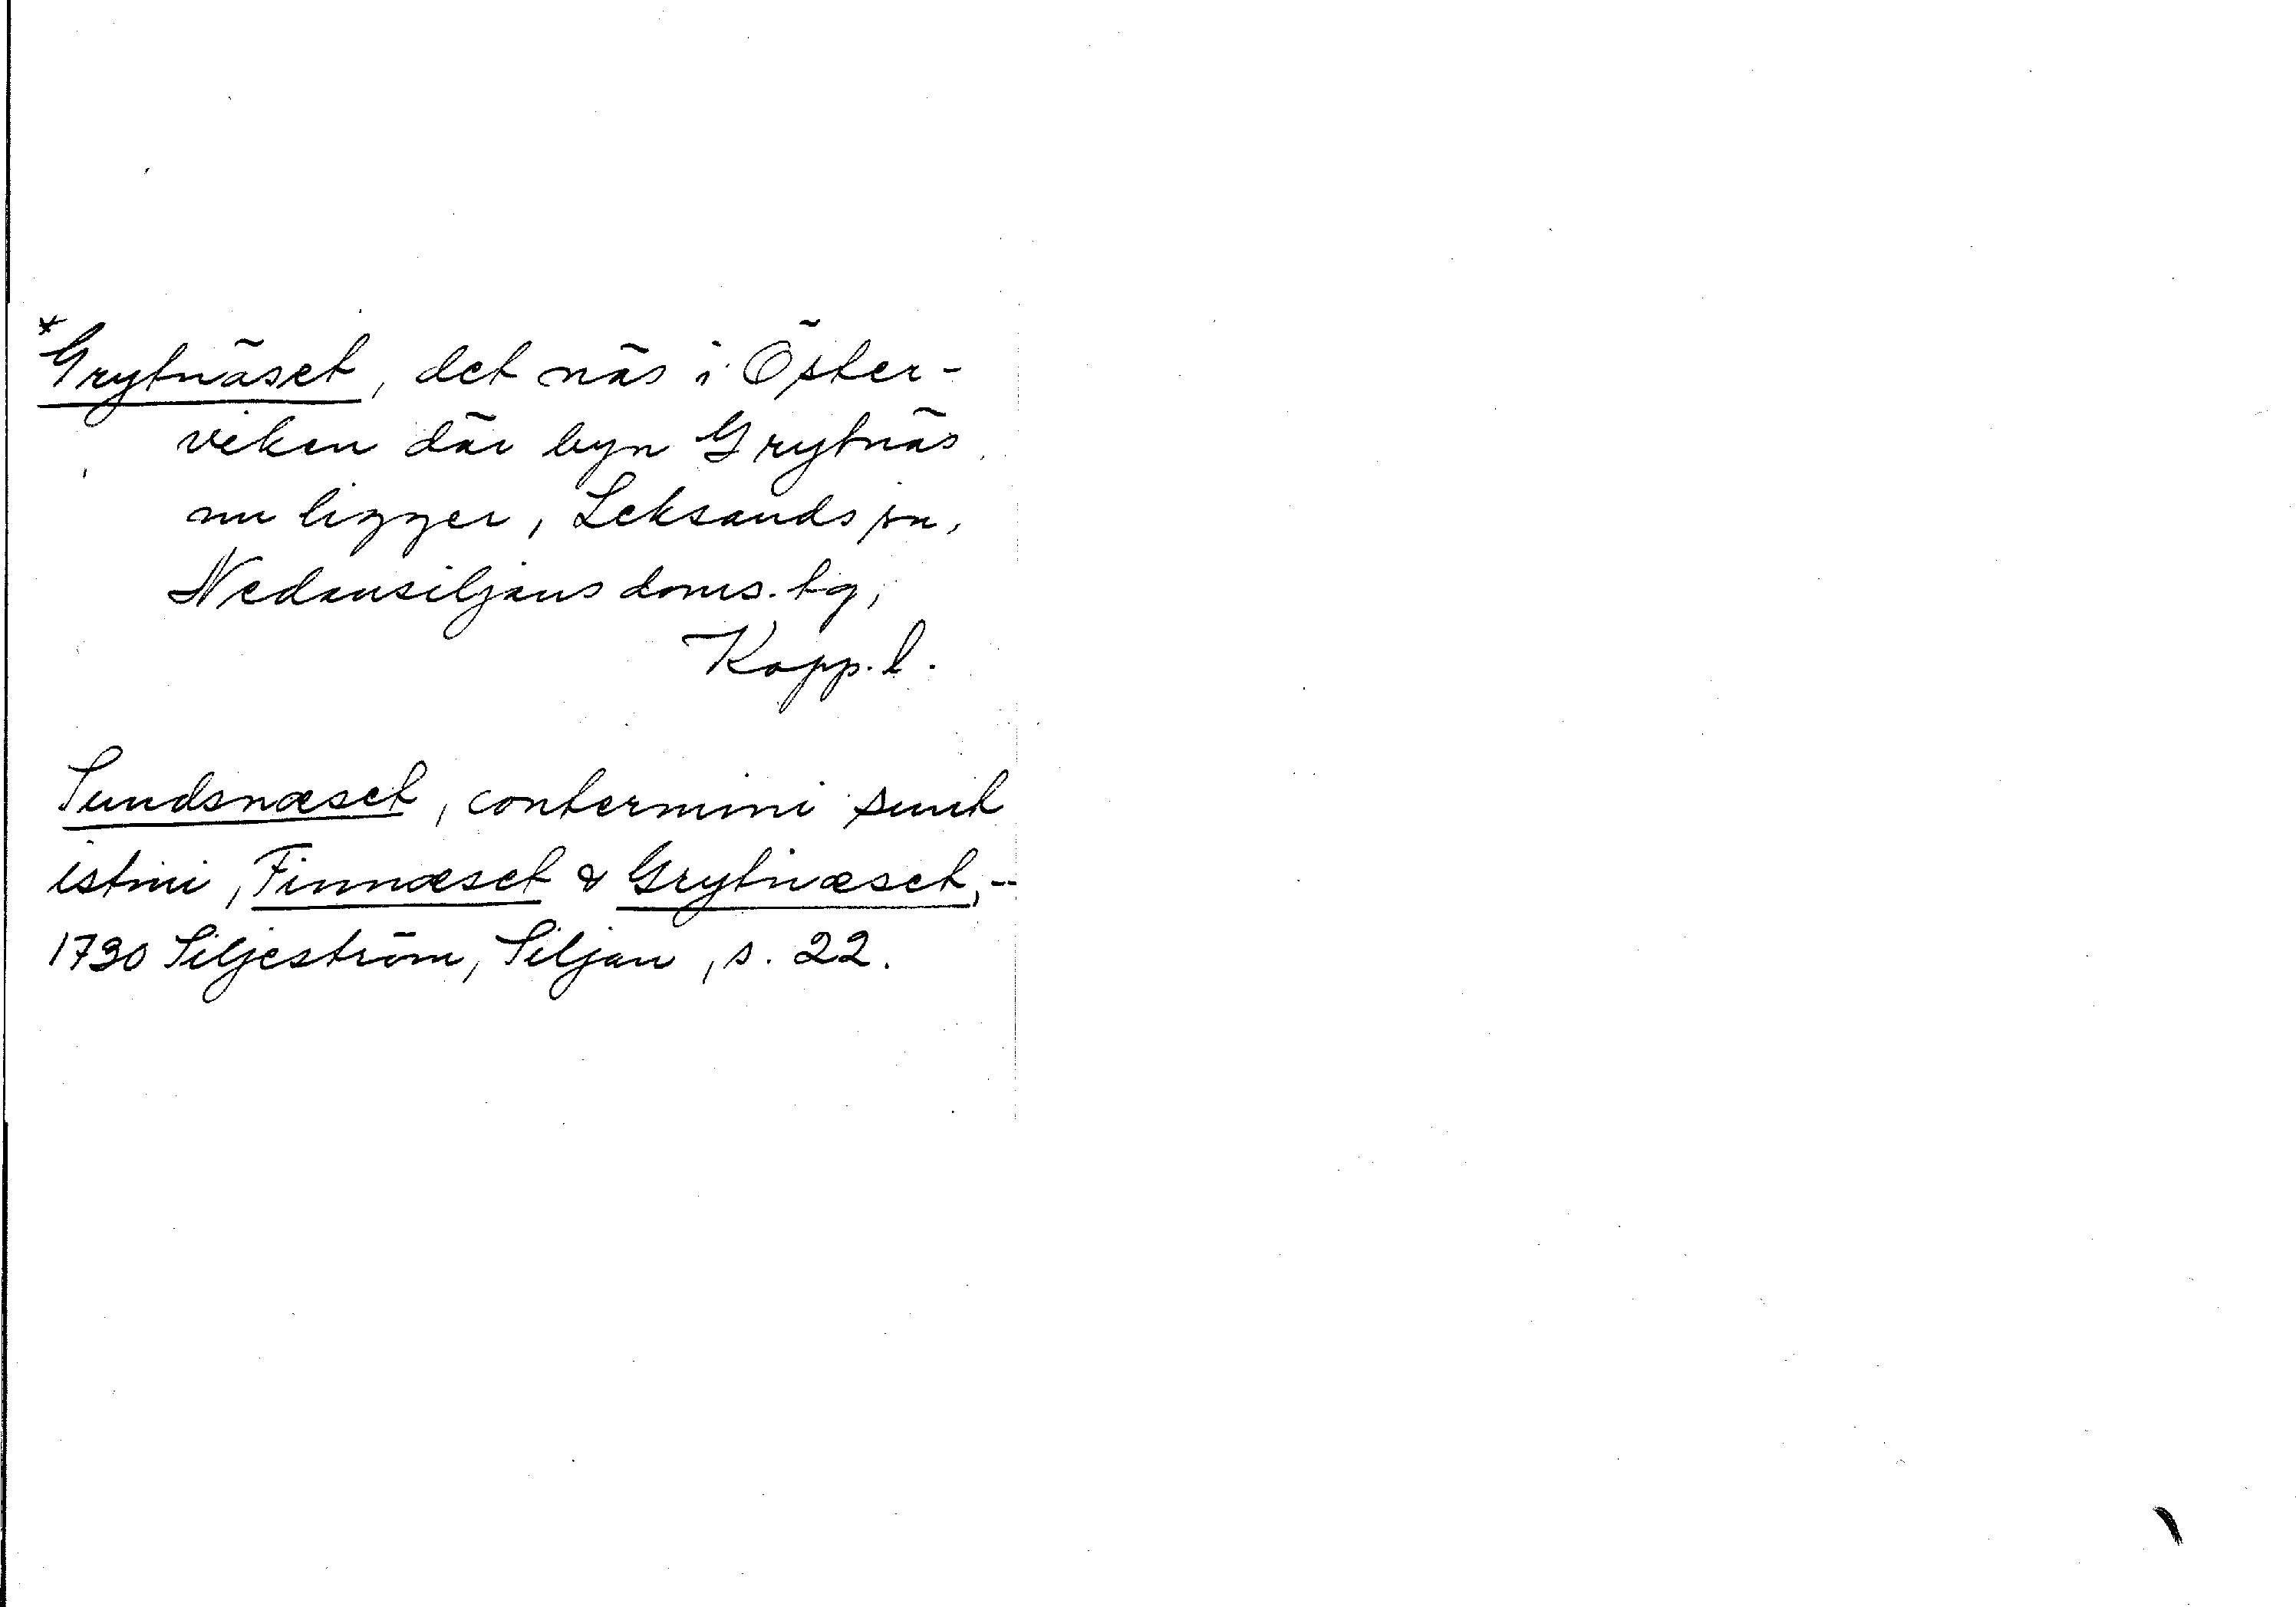 *Grytnäset, det näs i Öster-
viken där byn Grytnäs
nu ligger, Leksands sn,
Nedansiljans doms. tg,
Kopp. l.
Sundsnæset, contermini sunt
istini, Finnæset & Grytnæset, --
1730 Siljeström, Siljan, s. 22.